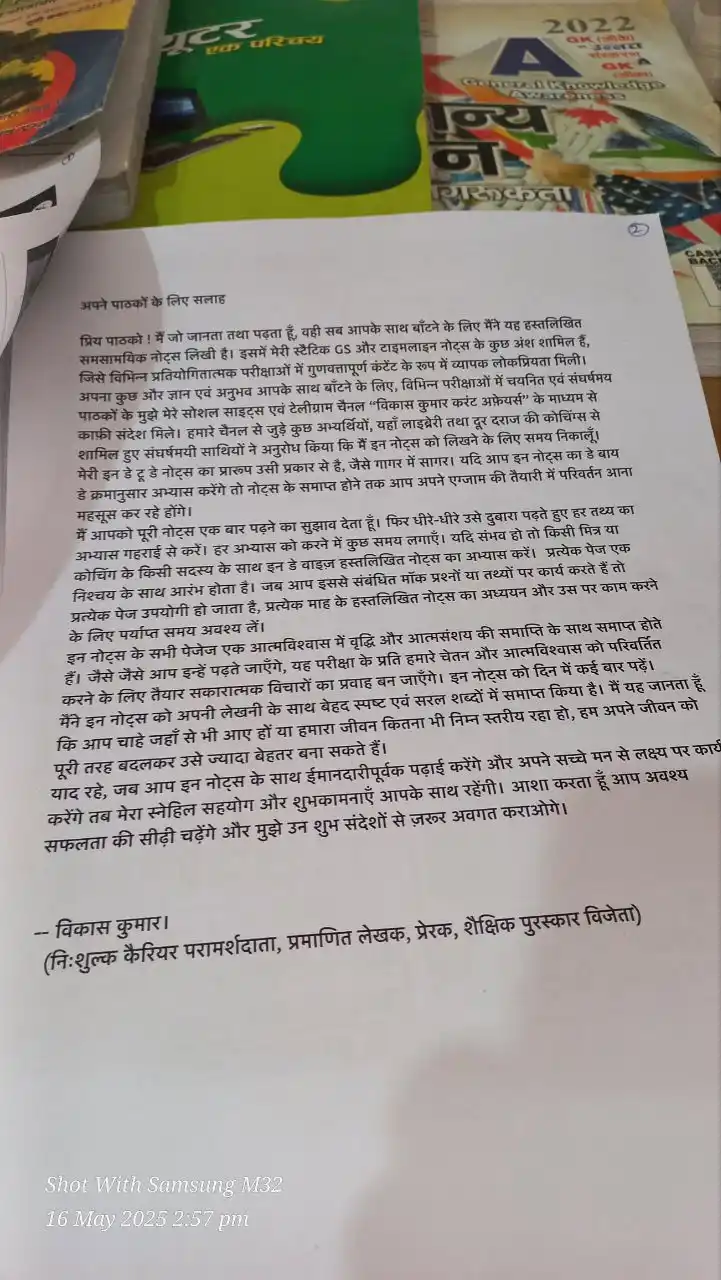 यूटर
एक परिचय
2022
GK (जीके)
- उन्नत
संस्करण
GK
A
General Knowledge
Awareness
न्य
न
गरूकता
CASH
BACK
2
अपने पाठकों के लिए सलाह
प्रिय पाठको ! मैं जो जानता तथा पढ़ता हूँ, वही सब आपके साथ बाँटने के लिए मैंने यह हस्तलिखित
समसामयिक नोट्स लिखी है। इसमें मेरी स्टैटिक GS और टाइमलाइन नोट्स के कुछ अंश शामिल हैं,
जिसे विभिन्न प्रतियोगितात्मक परीक्षाओं में गुणवत्तापूर्ण कंटेंट के रूप में व्यापक लोकप्रियता मिली।
अपना कुछ और ज्ञान एवं अनुभव आपके साथ बाँटने के लिए, विभिन्न परीक्षाओं में चयनित एवं संघर्षमय
पाठकों के मुझे मेरे सोशल साइट्स एवं टेलीग्राम चैनल “विकास कुमार करंट अफ़ेयर्स” के माध्यम से
काफ़ी संदेश मिले। हमारे चैनल से जुड़े कुछ अभ्यर्थियों, यहाँ लाइब्रेरी तथा दूर दराज की कोचिंग्स से
शामिल हुए संघर्षमयी साथियों ने अनुरोध किया कि मैं इन नोट्स को लिखने के लिए समय निकालूँ।
मेरी इन डे टू डे नोट्स का प्रारूप उसी प्रकार से है, जैसे गागर में सागर। यदि आप इन नोट्स का डे बाय
डे क्रमानुसार अभ्यास करेंगे तो नोट्स के समाप्त होने तक आप अपने एग्जाम की तैयारी में परिवर्तन आना
महसूस कर रहे होंगे।
मैं आपको पूरी नोट्स एक बार पढ़ने का सुझाव देता हूँ। फिर धीरे-धीरे उसे दुबारा पढ़ते हुए हर तथ्य का
अभ्यास गहराई से करें। हर अभ्यास को करने में कुछ समय लगाएँ। यदि संभव हो तो किसी मित्र या
कोचिंग के किसी सदस्य के साथ इन डे वाइज़ हस्तलिखित नोट्स का अभ्यास करें। प्रत्येक पेज एक
निश्चय के साथ आरंभ होता है। जब आप इससे संबंधित मॉक प्रश्नों या तथ्यों पर कार्य करते हैं तो
प्रत्येक पेज उपयोगी हो जाता है, प्रत्येक माह के हस्तलिखित नोट्स का अध्ययन और उस पर काम करने
के लिए पर्याप्त समय अवश्य लें।
इन नोट्स के सभी पेजेज एक आत्मविश्वास में वृद्धि और आत्मसंशय की समाप्ति के साथ समाप्त होते
हैं। जैसे जैसे आप इन्हें पढ़ते जाएँगे, यह परीक्षा के प्रति हमारे चेतन और आत्मविश्वास को परिवर्तित
करने के लिए तैयार सकारात्मक विचारों का प्रवाह बन जाएँगे। इन नोट्स को दिन में कई बार पढ़ें।
मैंने इन नोट्स को अपनी लेखनी के साथ बेहद स्पष्ट एवं सरल शब्दों में समाप्त किया है। मैं यह जानता हूँ
कि आप चाहे जहाँ से भी आए हों या हमारा जीवन कितना भी निम्न स्तरीय रहा हो, हम अपने जीवन को
पूरी तरह बदलकर उसे ज्यादा बेहतर बना सकते हैं।
याद रहे, जब आप इन नोट्स के साथ ईमानदारीपूर्वक पढ़ाई करेंगे और अपने सच्चे मन से लक्ष्य पर कार्य
करेंगे तब मेरा स्नेहिल सहयोग और शुभकामनाएँ आपके साथ रहेंगी। आशा करता हूँ आप अवश्य
सफलता की सीढ़ी चढ़ेंगे और मुझे उन शुभ संदेशों से ज़रूर अवगत कराओगे।
-- विकास कुमार।
(निःशुल्क कैरियर परामर्शदाता, प्रमाणित लेखक, प्रेरक, शैक्षिक पुरस्कार विजेता)
Shot With Samsung M32
16 May 2025 2:57 pm